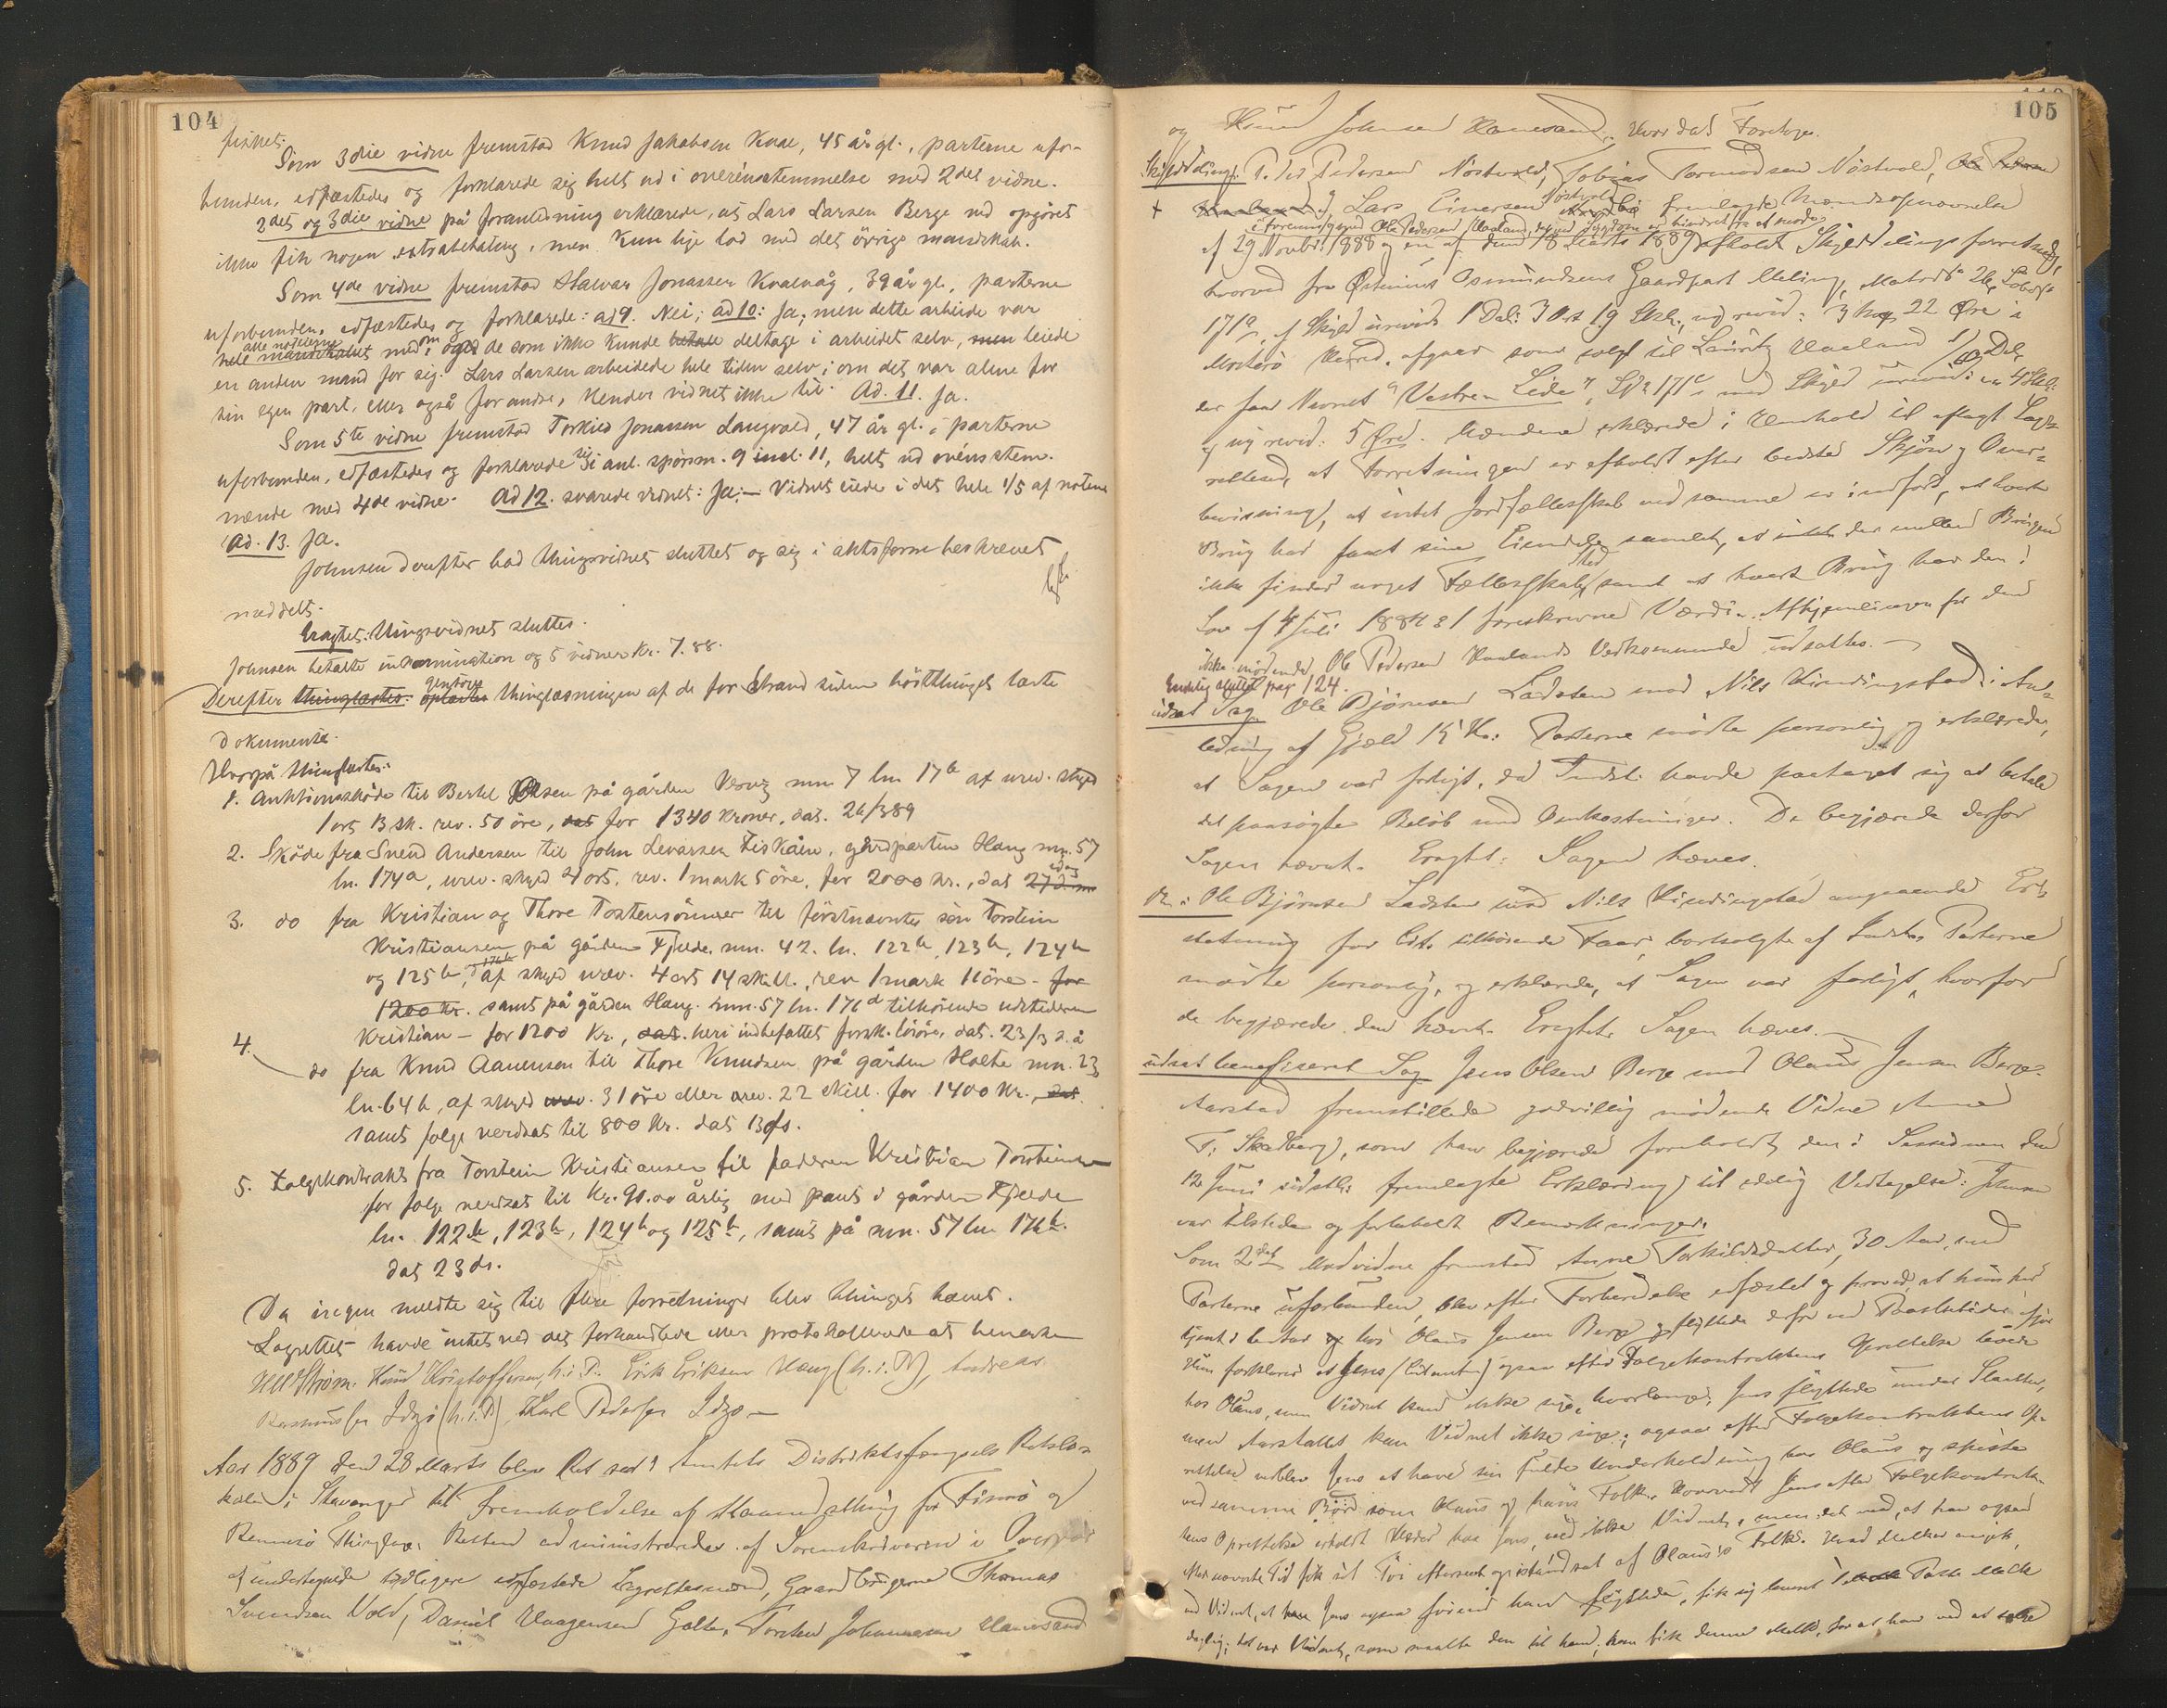 104
fisket.
Som 3die vidne fremstod Knud Jakobsen Kvae, 45 år gl., parterne ufor-
bunden, edfæstedes og forklarede sig helt ud i overénsstemmelse med 2det vidne.
2det og 3die vidne på foranledning erklærede, at Lars Larsen Berge ved opgjöret
ikke fik nogen extrabetaling, men kun lige lod med det övrige mandskab.
Som 4de vidne fremstod Halvar Jonassen Kvalvåg, 39 år gl., parterne
uforbunden, edfæstedes og forklarede: ad 9. Nei; ad 10: Ja; men dette arbeide var
alle nødt
hele mandskabet med om, også de som ikke kunde betale deltage i arbeidet selv, men leiede
en anden mand for sig. Lars Larsen arbeidede hele tiden selv; om det var alene for
sin egen part, eller også for andre, kender vidnet ikke til. Ad. 11. Ja.
Som 5te vidne fremstod Torkild Jonassen Langvald, 47 år gl., parterne
uforbunden, edfæstedes og forklarede sig i anl. spörsm. 9 incl. 11, helt ud overénsstem-
mende med 4de vidne. Ad 12. svarede vidnet: Ja; — Vidnet eiede i det hele 1/5 af noterne
Ad. 13. Ja.
Johnsen derefter bad thingsvidnet sluttet og sig i aktsform beskrevet
meddelt.
Eragtet: Thingsvidnet sluttes.
Johnsen betalte og 5 vidner Kr. 7.88.
Derefter thinglæstes: oplæstes thinglæsningen af de for Strand siden hösthinget læste
dokumenter.
Hvorpå thinglæstes:
1. Auktionsskjöde til Bertel Olsen på gården mn 7 ln 17b af urev. skyld
1 ort 13 sk. rev. 50 öre, dat for 1340 kroner, dat. 26/3 89
2. Sköde fra Svend Andersen til John Levarsen Fiskåen, gårdparten Haug mn. 57
ln. 174a, urev. skyld 4 ort, rev. 1 mark 5 öre, for 2000 kr., dat 27 d. m
3. do fra Kristian og Thore Tostensönner til förstnævntes sön Torstein
Kristiansen på gården Fjelde, mn. 42. ln. 122b, 123b, 124b
og 125b, af skyld urev. 4 ort 14 skill., rev 1 mark 11 öre - for
1200 kr. samt på gården Haug mn. 57 ln. 176d tilhörende udstederen
Kristian - for 1200 Kr., dat. heri indbefattet forsk. lösöre, dat. 23/3 d. å
4. do fra Knud Aanensen til Thore Knudsen på gården Holte mn. 23
ln. 64b, af skyld urev. 31 öre eller urev. 22 skill. for 1400 Kr., dat.
samt folge verdsat til 800 Kr. dat 13 ds.
5. Folgekontrakt fra Torstein Kristiansen til faderen Kristian Torstensen
for folge verdsat til Kr. 90.00 årlig med pant i gården Fjelde
ln. 122b, 123b, 124b og 125b, samt på mn. 57 ln 176b.
dat 23 ds.
Da ingen meldte sig til flere forretninger blev thinget hævet.
Lagrettet havde intet ved det forhandlede eller protokollerede at bemærke
Knud Kristoffersen, h.i.P. Erik Eriksen Haug (h.i.P), Andreas
Rasmussen Idsö (h.i.P) Karl Pedersen Idsö —
Aar 1889 den 28 Marts blev Ret sat i Amtets Distriktsfængsels Retslo-
kale i Stavanger til Fremholdelse af Maanedsthing for Finnö og
Rennesö Thinglag. Retten administreredes af Sorenskriveren i
af undertegnede tidligere edfæstede Lagrettesmænd, Gaardbrugerne Thomas
Svendsen Vold, Daniel Haagensen Galte, Torsten Johannesen Hanasand
105
og Knud Johnsen Hanasand. Hvor da Foretoges.
Skylddeling: Peder Pedersen Nöstvold, Tobias Tormodsen Nöstvold, Ole Pedersen
Haaland og Lars Einersen Nöstvold fremlagde Mændsopnævnelse
i Forening med Ole Pedersen Haaland, der ved Sygdom er hindret fra at møde
af 29 Novbr. 1888 og en af dem 18 Marts 1889 afholdt Skylddelingsforretning,
hvorved fra Østmund Osmundsens Gaardpart Meling, Matr No 26, Löbe No
171a, af Skyld urevid. 1 Dal: 3 Ort 19 Skl., og revid: 3 Mark 22 Öre i
Mosterö Herred, afgaar som solgt til Lauritz Haaland en Del,
der faar Navnet "Vestre Lide", LNo 171c med Skyld urevid: 4 Skl:
og ny revid: 5 Öre. Mændene erklærede i Henhold til aflagt Lagr-
ettesed, at Forretningen er afholdt efter bedste Skjön og Over-
bevisning, at intet Jordfællesskab ved samme er indfört, at hvert
Brug har faaet sine Eiendele samlet, at der mellem Brugene
ikke finder noget Fællesskab Sted samt at hvert Brug har den i
Lov af 4 Juli 1884 § 1 foreskrevne Værdi. Afhjemlingen for den
ikke mödende Ole Pedersen Haalands Vedkommende udsattes. —
Endelig afsluttet pag. 124.
udsat Sag Ole Björnsen Ladsten mod Nils Vindingstad i An-
ledning af Gjæld 15 Kr: Parterne mödte personlig og erklærede,
at Sagen var forligt, da Indst. havde paataget sig at betale
det paasögte Belöb med Omkostninger. De begjærede derfor
Sagen hævet. Eragtet: Sagen hæves.
do: Ole Björnsen Ladsten mod Nils Vindingstad angaaende Er-
statning for Cit. tilhörende Faar, bortsolgte af Indst. Parterne
mödte personlig, og erklærede, at Sagen var forligt, hvorfor
de begjærede den hævet. Eragtet: Sagen hæves. —
udsat beneficeret Sag Jens Olsen Berge mod Olaus Jensen Berge.
Aarstad fremstillede godvillig mödende Vidne Anne
T. Skadberg, som han begjærede foreholdt den i Sessionen den
12 Juni sidstl: fremlagte Erklæring til edelig Vedtagelse.
var tilstede og forbeholdt Bemærkninger.
Som 2det Modvidne fremstod Anne Torkildsdatter, 30 Aar, med
Parterne uforbunden, blev efter Forberedelse edfæstet og provede, at hun har
tjent hos Olaus Jensen Berge og flyttede derfra ved Paasketider ifjor
Hun forklarer at Jens (Citanten) ogsaa efter Folgekontraktens Oprettelse levede
hos Olaus, men Vidnet kan ikke sige, hvorlænge; Jens flyttede under Slaatten,
men Aarstallet kan Vidnet ikke sige; ogsaa efter Folgekontraktens Op-
rettelse vedblev Jens at have sin fulde Underholdning hos Olaus og spiste
ved samme Bord som Olaus og hans Folk. Hvorvidt Jens efter Folgekontrak-
tens Oprettelse erholdt Klæder hos Jens, ved ikke Vidnet, men det ved, at han ogsaa
Tid fik sit Töi efterseet og istandsat af Olaus's Folk. Hvad Melken angik,
ved Vidnet, at Jens ogsaa förend han flyttede, fik sig levert 1 Potte Melk
daglig; det var Vidnet, som maalte den til ham; han fik denne Melk, for at han ved at sælge